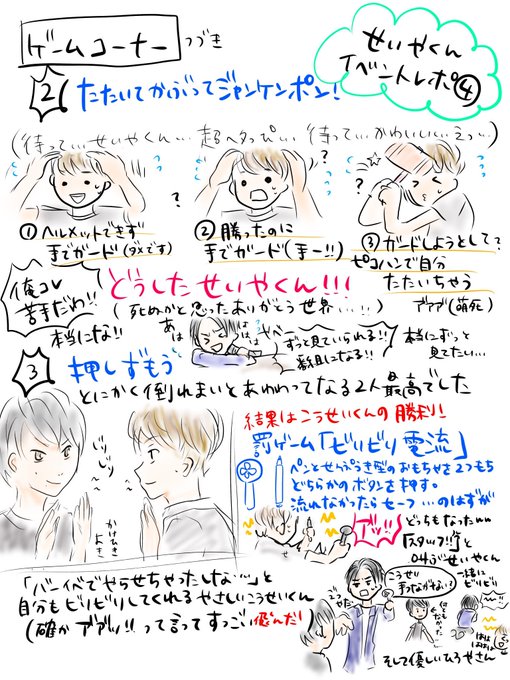 ゲームコーナー つづき
せいやくん
イベントレポ④
② たたいてかぶってジャンケンポン!
(待って…せいやくん…超ヘタっぴ…待って…かわいいい…えっ…)
?
?
?
① ヘルメットできず
手でガード(ダメです)
② 勝ったのに
手でガード(まー!!)
③ ガードしようとして?
ピコハンで自分
たたいちゃう
アアア(萌死)
俺コレ
苦手だわ!!
本当にな!!
どうしたせいやくん!!!
(死ぬかと思ったありがとう世界…!!)
あはは
ははは
ヤベー
ずっと見ていられる!!
番組になる!!
本当にずっと
見てたい…
③ 押しずもう
とにかく倒れまいとあわわってなる2人最高でした
じりじり
かけひき
よき
結果はこうせいくんの勝利!
罰ゲーム「ビリビリ電流」
ペンとせんぷうき型のおもちゃを2つもち
どちらかのボタンを押す。
流れなかったらセーフ…のはずが
アッ!!
どっちもなったww
「スタッフ!!」と
せいやくん
「バーイベでやらせちゃったしな…」と
自分もビリビリしてくれるやさしいこうせいくん
(確かアアッ!!って言ってすっごい飛んだ!)
こうせい
手つながない?
一緒に
ビリビリ
そして優しいひろやさん